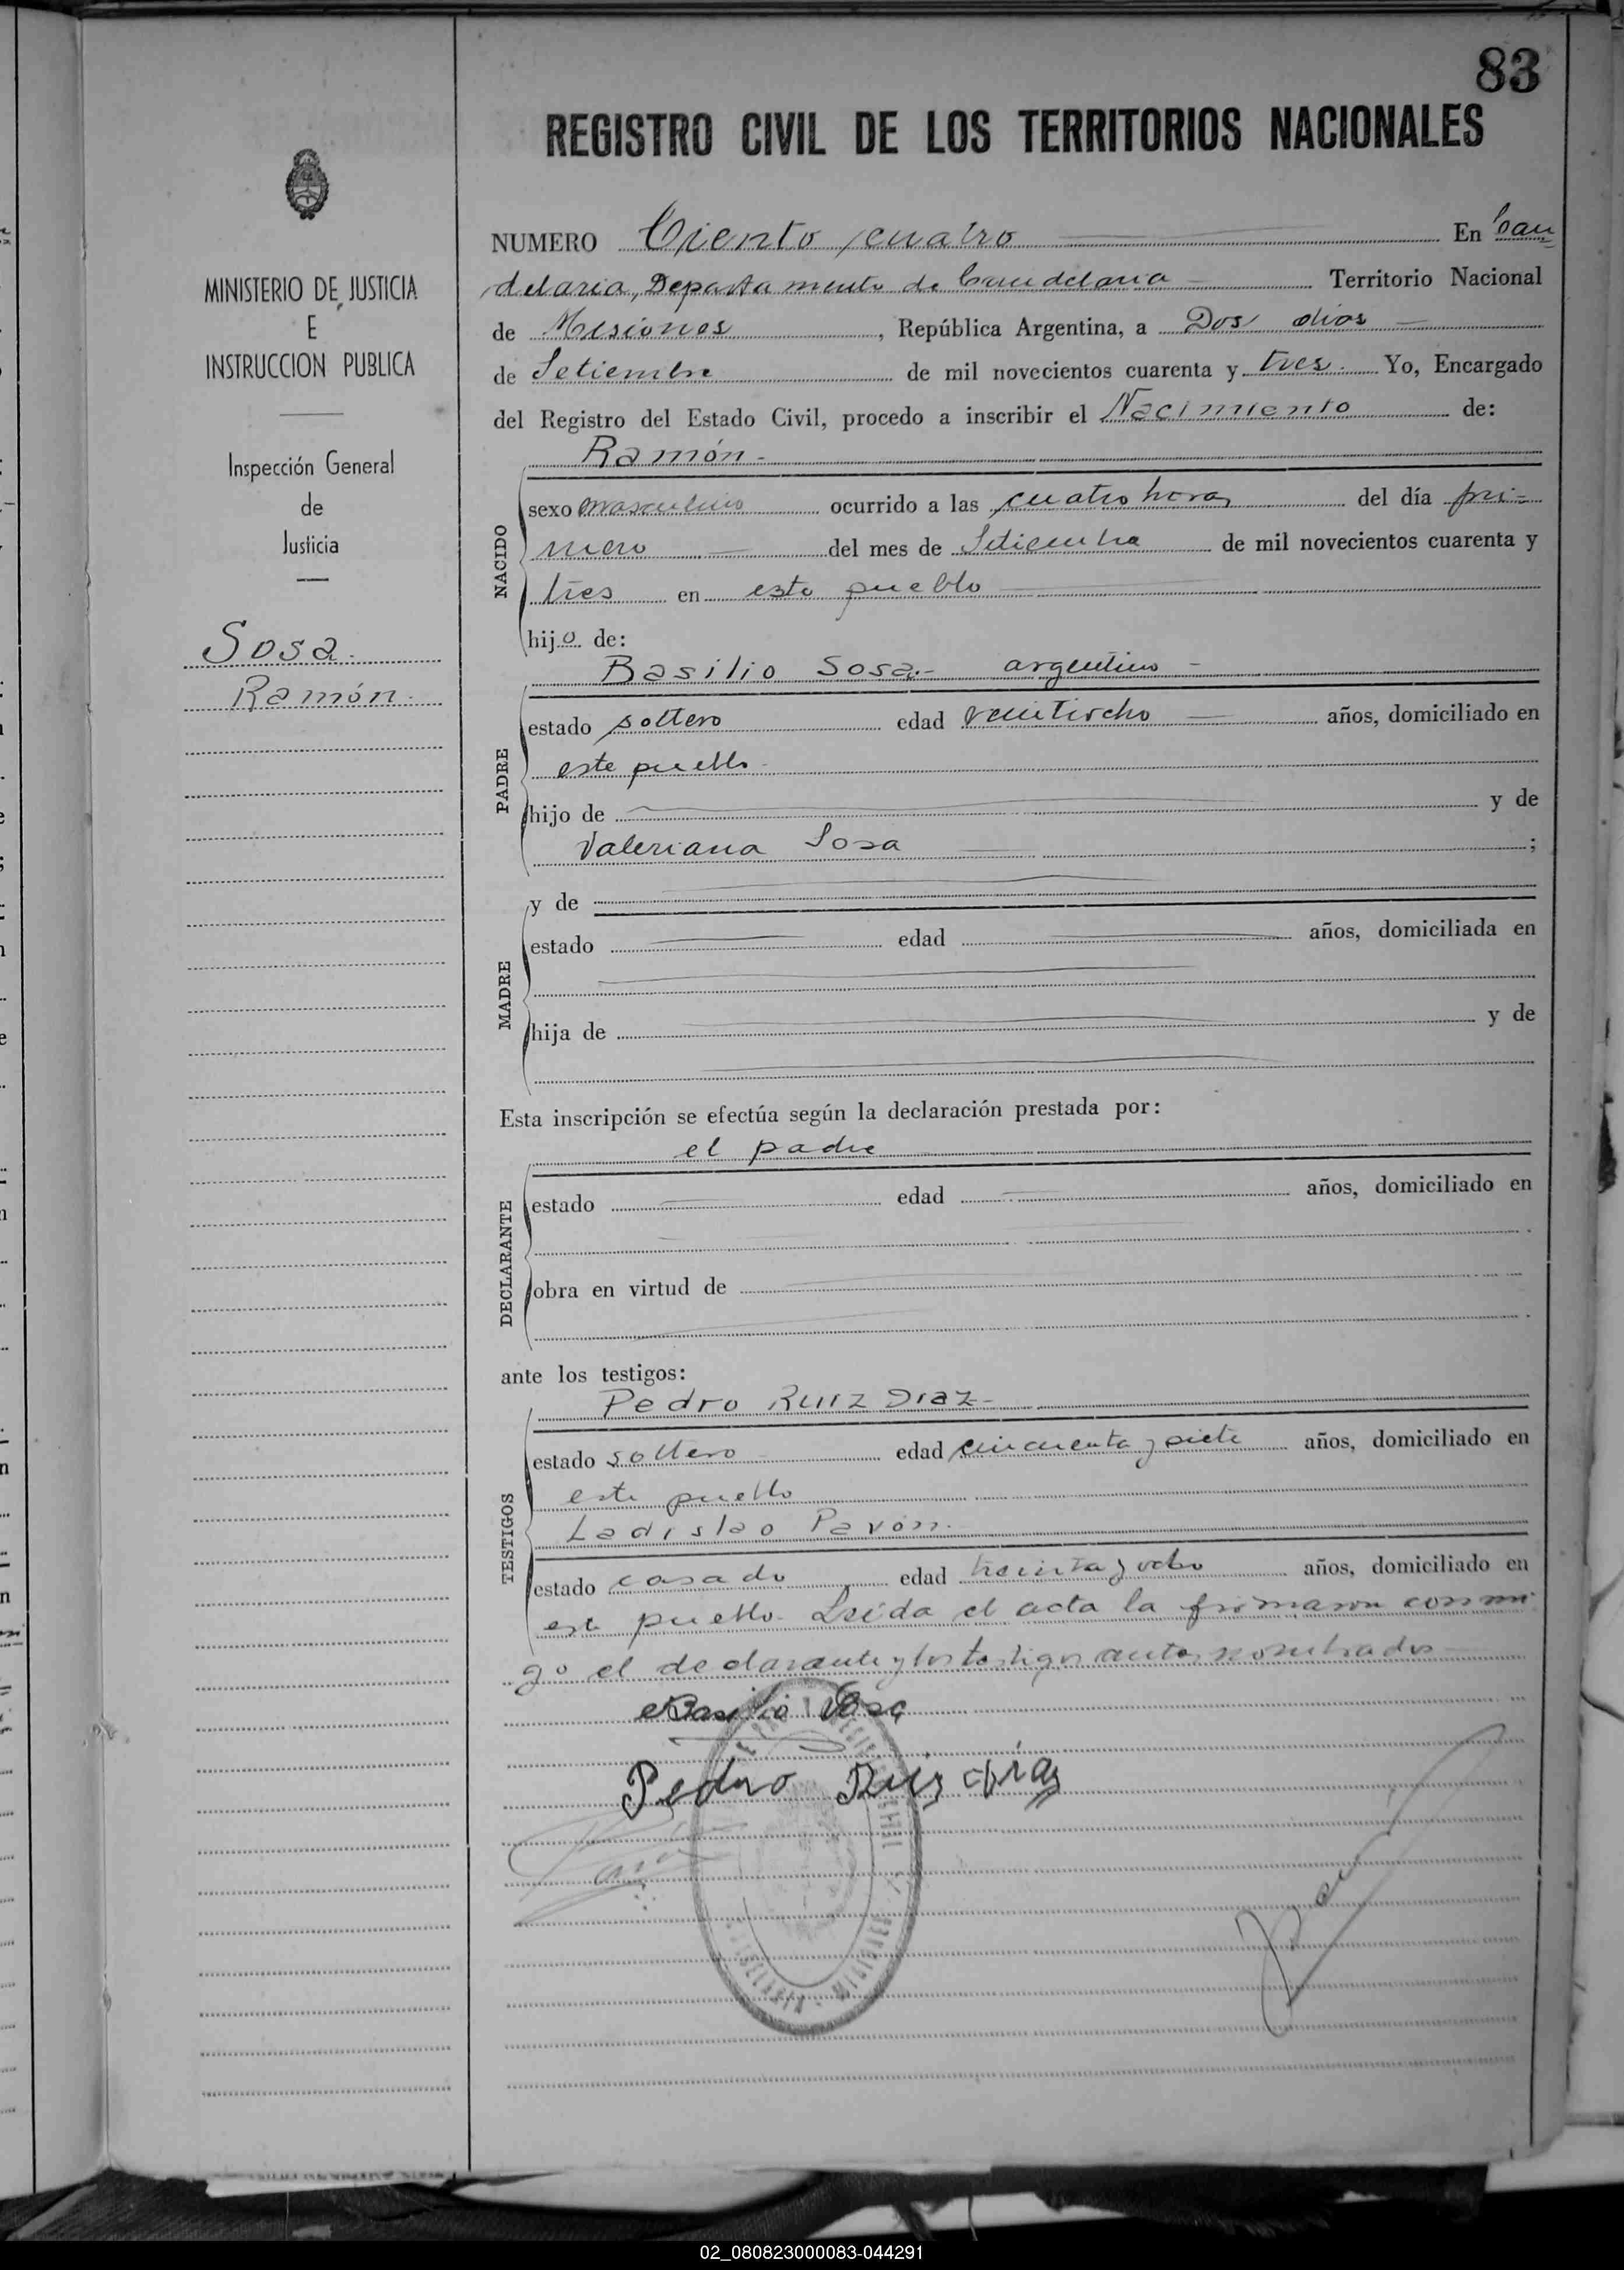 83
REGISTRO CIVIL DE LOS TERRITORIOS NACIONALES
MINISTERIO DE JUSTICIA
E
INSTRUCCION PUBLICA
Inspección General
de
Justicia
Sosa.
Ramón.
NUMERO Ciento cuatro En Can
delaria, Departamento de Candelaria Territorio Nacional
de Misiones, República Argentina, a Dos dias
de Setiembre de mil novecientos cuarenta y tres. Yo, Encargado
del Registro del Estado Civil, procedo a inscribir el Nacimiento de:
Ramón.
NACIDO
sexo masculino ocurrido a las cuatro horas del día pri-
mero del mes de Setiembre de mil novecientos cuarenta y
tres en este pueblo
hijo de:
Basilio Sosa.- argentino -
PADRE
estado soltero edad veintiocho años, domiciliado en
este pueblo
hijo de y de
Valeriana Sosa ;
MADRE
y de
estado edad años, domiciliada en
hija de y de
Esta inscripción se efectúa según la declaración prestada por:
el padre
DECLARANTE
estado edad años, domiciliado en
obra en virtud de
ante los testigos:
Pedro Ruiz Diaz-
TESTIGOS
estado soltero edad cincuenta y siete años, domiciliado en
este pueblo
Ladislao Pavón.
estado casado edad treinta y ocho años, domiciliado en
este pueblo. Leida el acta la firmaron conmi
go el declarante y los testigos antes nombrados
Basilio Sosa
Pedro Ruiz Diaz
02_080823000083-044291